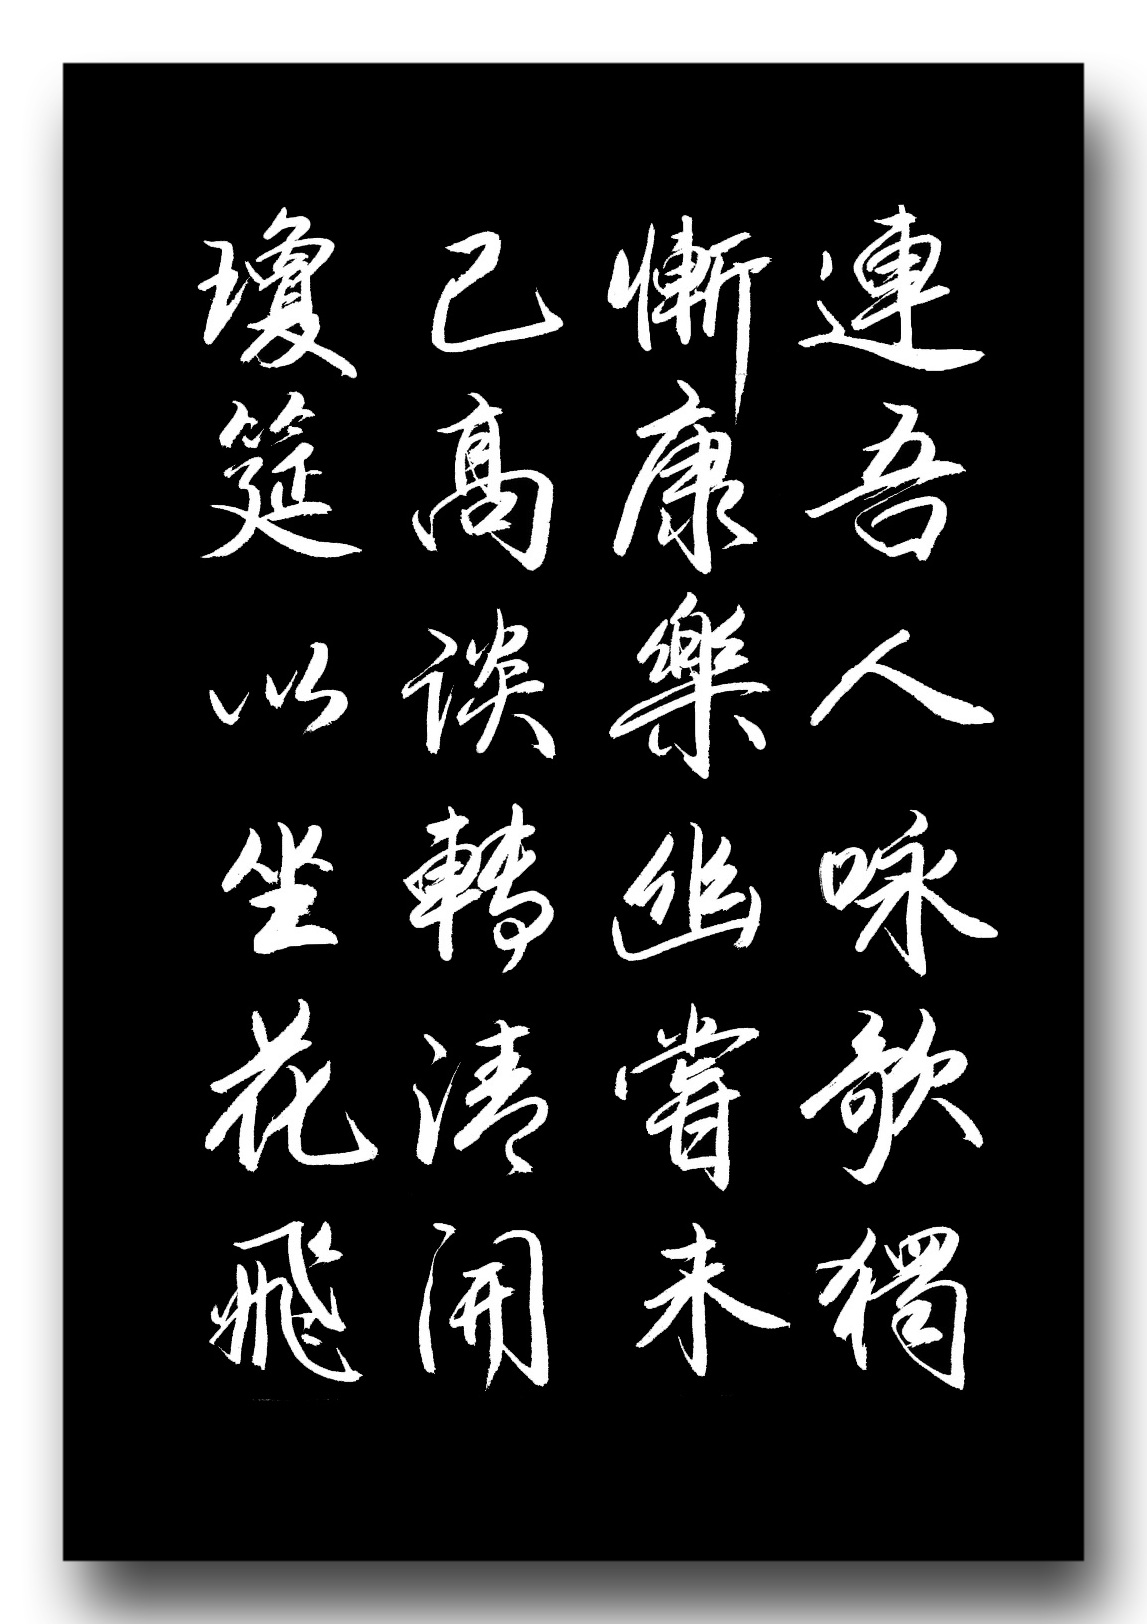 連吾人咏歌獨
慚康樂幽賞未
已高談轉清開
瓊筵以坐花飛